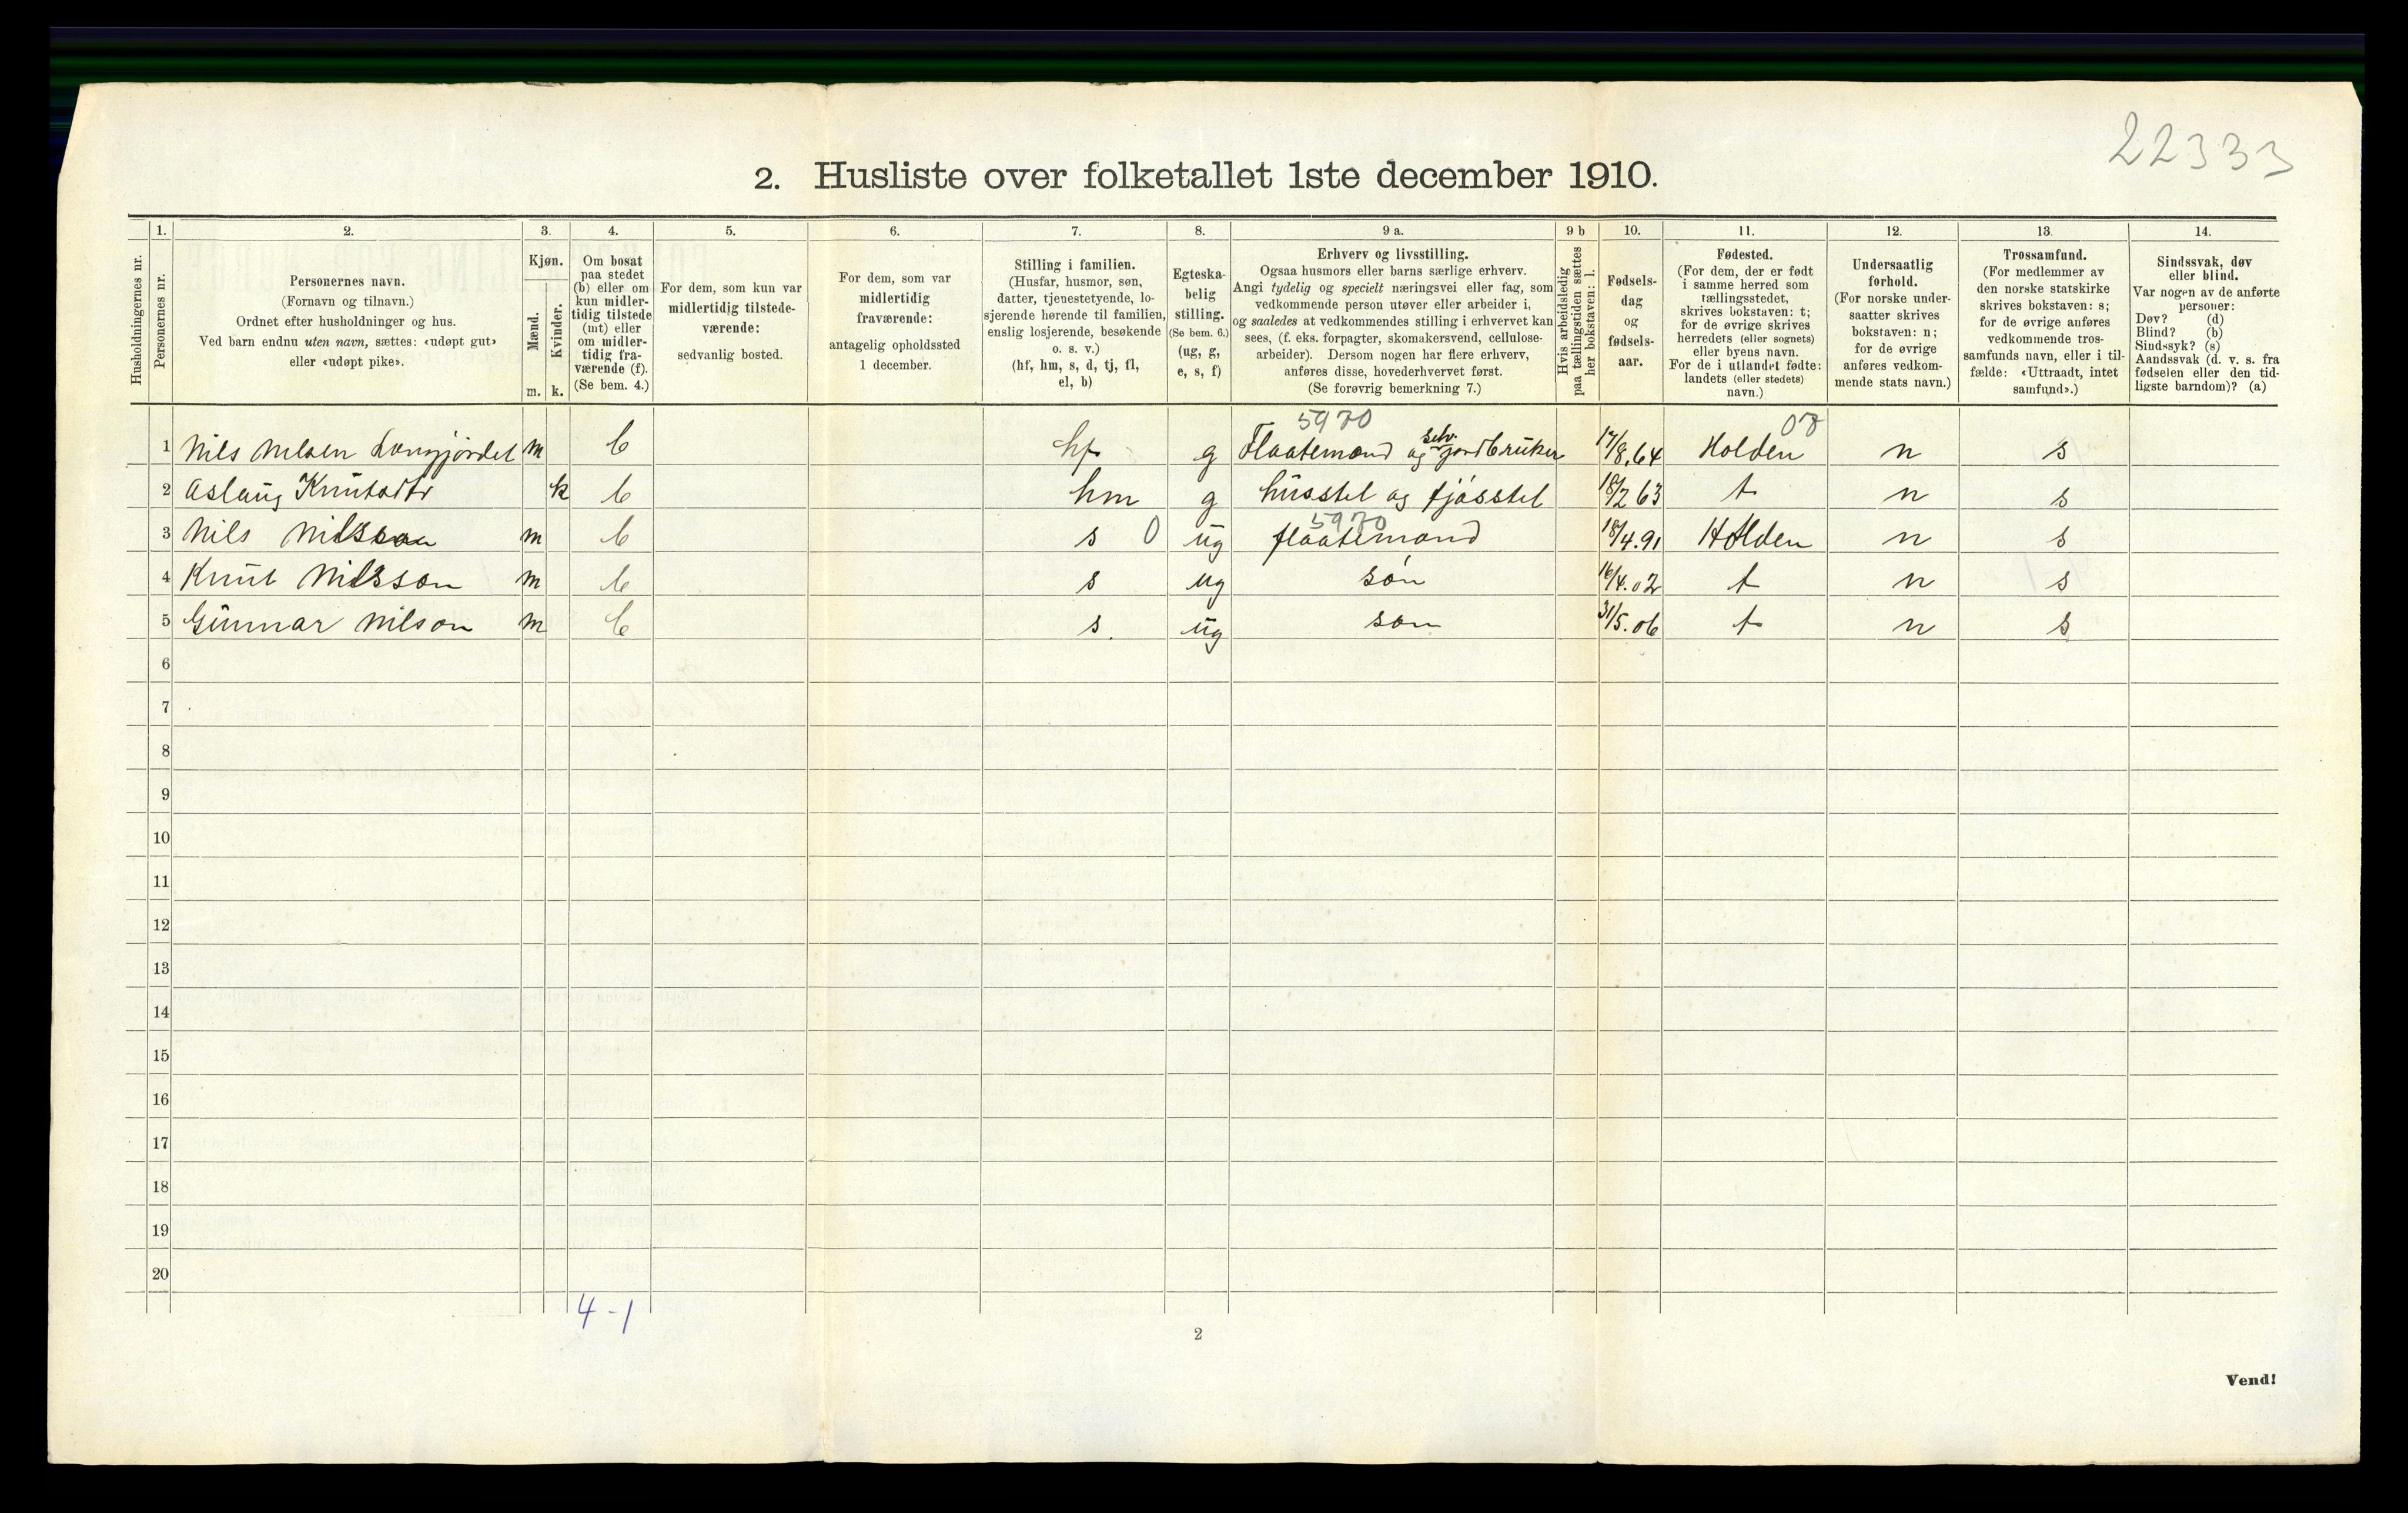 22333
2. Husliste over folketallet 1ste december 1910.
Husholdningernes nr.
1. Personernes nr.
2. Personernes navn.
(Fornavn og tilnavn.)
Ordnet efter husholdninger og hus.
Ved barn endnu uten navn, sættes: «udøpt gut»
eller «udøpt pike».
3. Kjøn.
Mænd. m.
Kvinder. k.
4. Om bosat
paa stedet
(b) eller om
kun midler-
tidig tilstede
(mt) eller
om midler-
tidig fra-
værende (f).
(Se bem. 4.)
5. For dem, som kun var
midlertidig tilstede-
værende:
sedvanlig bosted.
6. For dem, som var
midlertidig
fraværende:
antagelig opholdssted
1 december.
7. Stilling i familien.
(Husfar, husmor, søn,
datter, tjenestetyende, lo-
sjerende hørende til familien,
enslig losjerende, besøkende
o. s. v.)
(hf, hm, s, d, tj, fl,
el, b)
8. Egteska-
belig
stilling.
(Se bem. 6.)
(ug, g,
e, s, f)
9 a. Erhverv og livsstilling.
Ogsaa husmors eller barns særlige erhverv.
Angi tydelig og specielt næringsvei eller fag, som
vedkommende person utøver eller arbeider i,
og saaledes at vedkommendes stilling i erhvervet kan
sees, (f. eks. forpagter, skomakersvend, cellulose-
arbeider). Dersom nogen har flere erhverv,
anføres disse, hovederhvervet først.
(Se forøvrig bemerkning 7.)
9 b Hvis arbeidsledig
paa tællingstiden sættes
her bokstaven: l.
10. Fødsels-
dag
og
fødsels-
aar.
11. Fødested.
(For dem, der er født
i samme herred som
tællingsstedet,
skrives bokstaven: t;
for de øvrige skrives
herredets (eller sognets)
eller byens navn.
For de i utlandet fødte:
landets (eller stedets)
navn.)
12. Undersaatlig
forhold.
(For norske under-
saatter skrives
bokstaven: n;
for de øvrige
anføres vedkom-
mende stats navn.)
13. Trossamfund.
(For medlemmer av
den norske statskirke
skrives bokstaven: s;
for de øvrige anføres
vedkommende tros-
samfunds navn, eller i til-
fælde: «Uttraadt, intet
samfund».)
14. Sindssvak, døv
eller blind.
Var nogen av de anførte
personer:
Døv? (d)
Blind? (b)
Sindssyk? (s)
Aandssvak (d. v. s. fra
fødselen eller den tid-
ligste barndom)? (a)
5970 07
1 Nils Nelsen m b hf g Flaatemand og selv. jordbruker 17/8.64 Holden n s
2 Aslaug Knutsdtr k b hm g husstel og fjøsstel 18/2 63 t n s
5970
3 Nils Nilsson m b s 0 ug flaatemand 18/4.91 Holden n s
4 Knut Nilsson m b s ug søn 16/4.02 t n s
5 Gunnar Nilson m b s. ug søn 31/5.06 t n s
6
7
8
9
10
11
12
13
14
15
16
17
18
19
20
4-1
2
Vend!